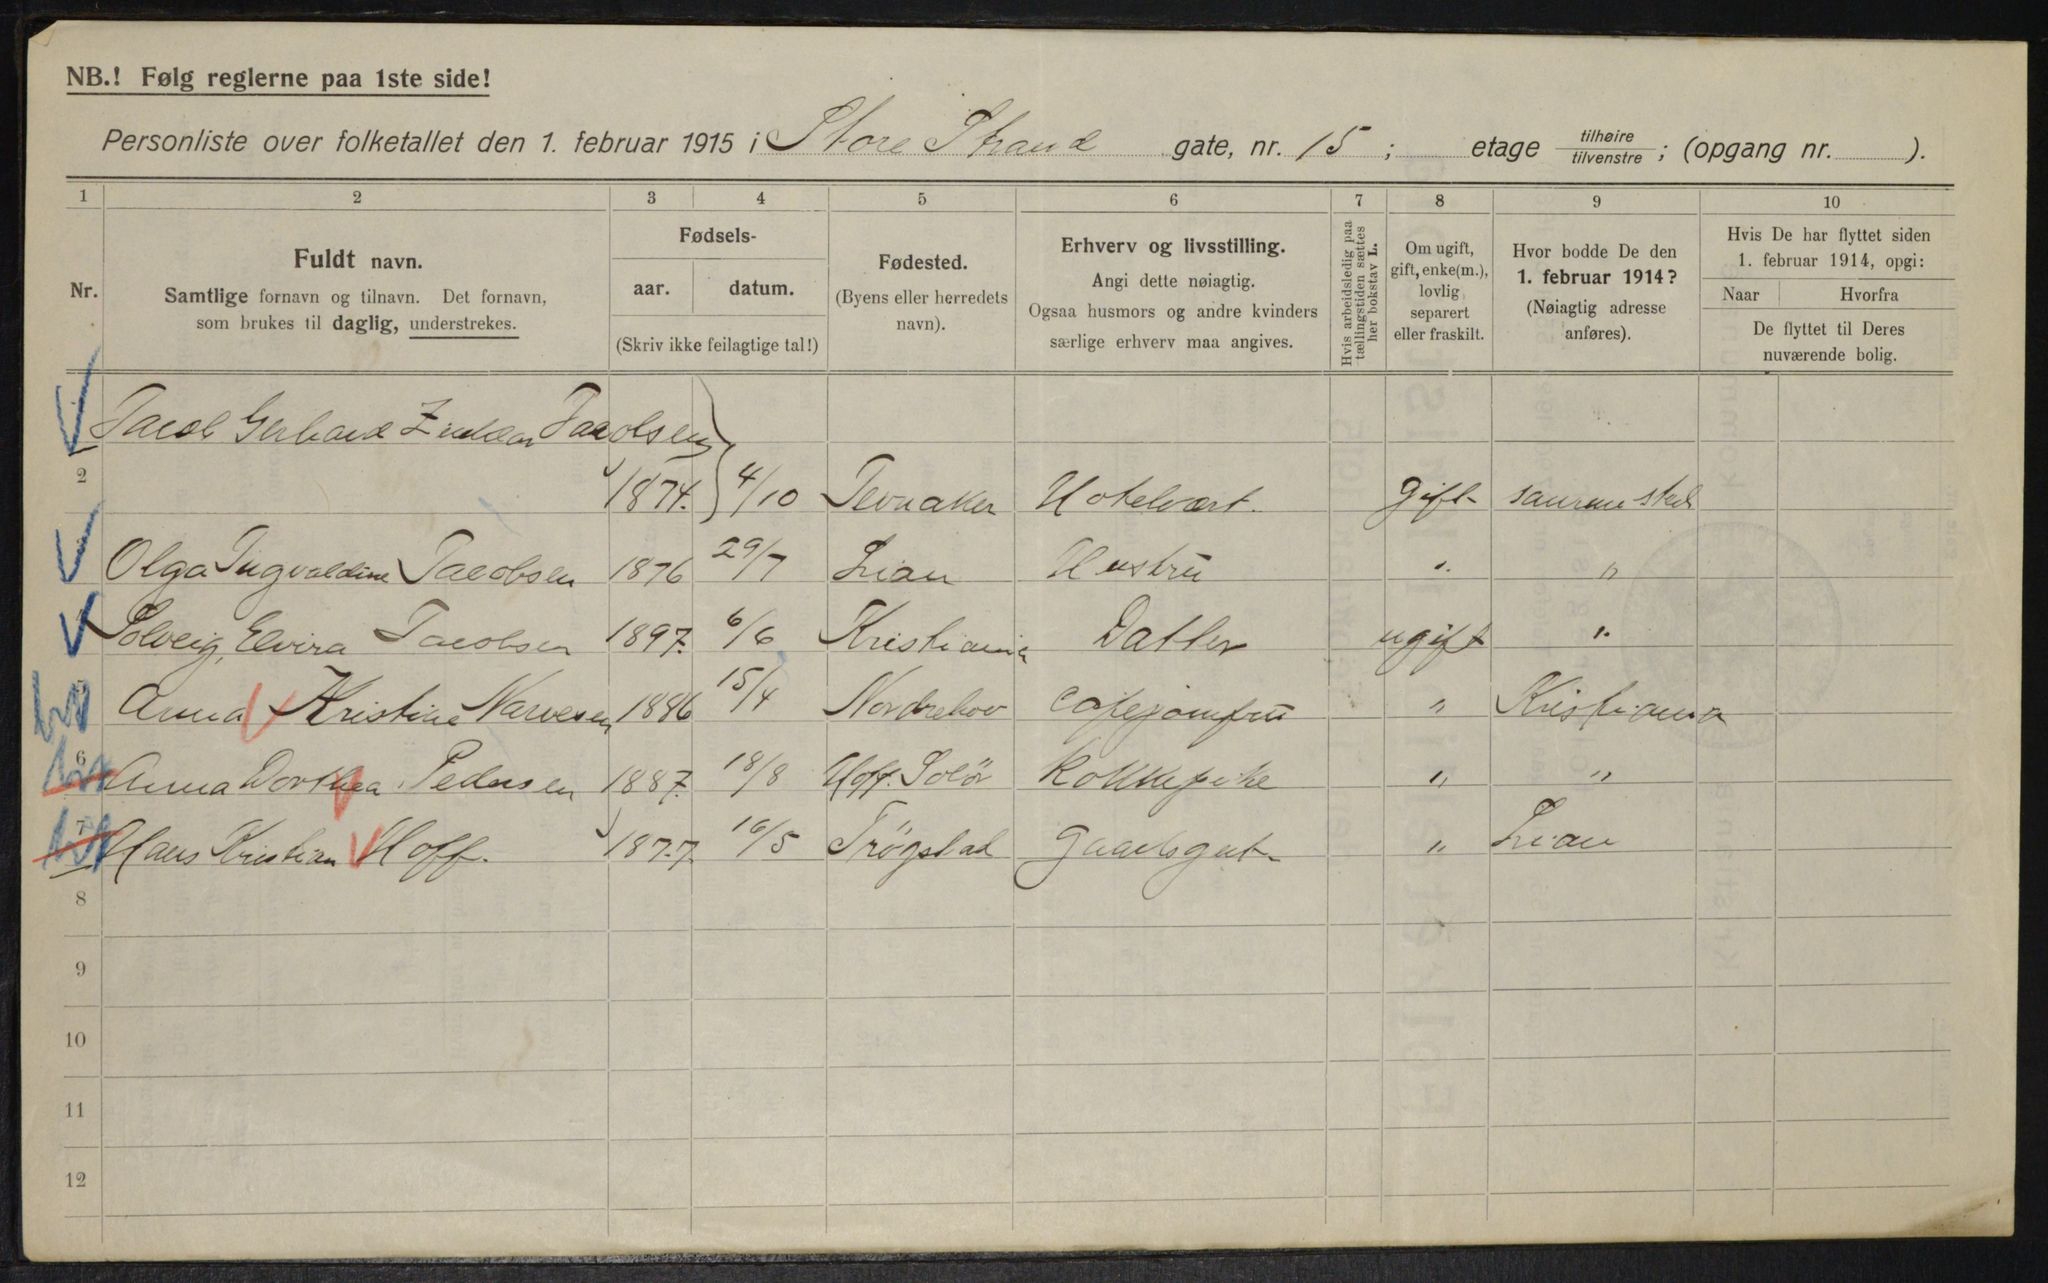 NB.! Følg reglerne paa 1ste side!
Personliste over folketallet den 1. februar 1915 i Store Strand gate, nr. 15 ; etage tilhøire tilvenstre ; (opgang nr. ).
1 2 3 4 5 6 7 8 9 10
Nr.
Fuldt navn.
Samtlige fornavn og tilnavn. Det fornavn,
som brukes til daglig, understrekes.
Fødsels-
aar. datum.
(Skriv ikke feilagtige tal!)
Fødested.
(Byens eller herredets
navn).
Erhverv og livsstilling.
Angi dette nøiagtig.
Ogsaa husmors og andre kvinders
særlige erhverv maa angives.
Hvis arbeidsledig paa
tællingstiden sættes
her bokstav L.
Om ugift,
gift, enke(m.),
lovlig
separert
eller fraskilt.
Hvor bodde De den
1. februar 1914?
(Nøiagtig adresse
anføres).
Hvis De har flyttet siden
1. februar 1914, opgi:
Naar Hvorfra
De flyttet til Deres
nuværende bolig.
Jacob Gerhard Jacobsen
2 1874. 4/10 Jevnaker Hotelvært. gift samme sted
Olga Ingvaldine Jacobsen 1876 29/7 Lian Hustru " "
Solveig Elvira Jacobsen 1897. 6/6 Kristiania Datter ugift "
Anna Kristine Narvesen 1886 15/4 Nordrehov cafejomfru " Kristiania
6 Anna Dorthea Pedersen 1887. 18/8 Hoff. Solør Kokkepike " "
7 Hans Kristian Hoff. 1877. 16/5 Trøgstad Gaardsgut " Lian
8
9
10
11
12